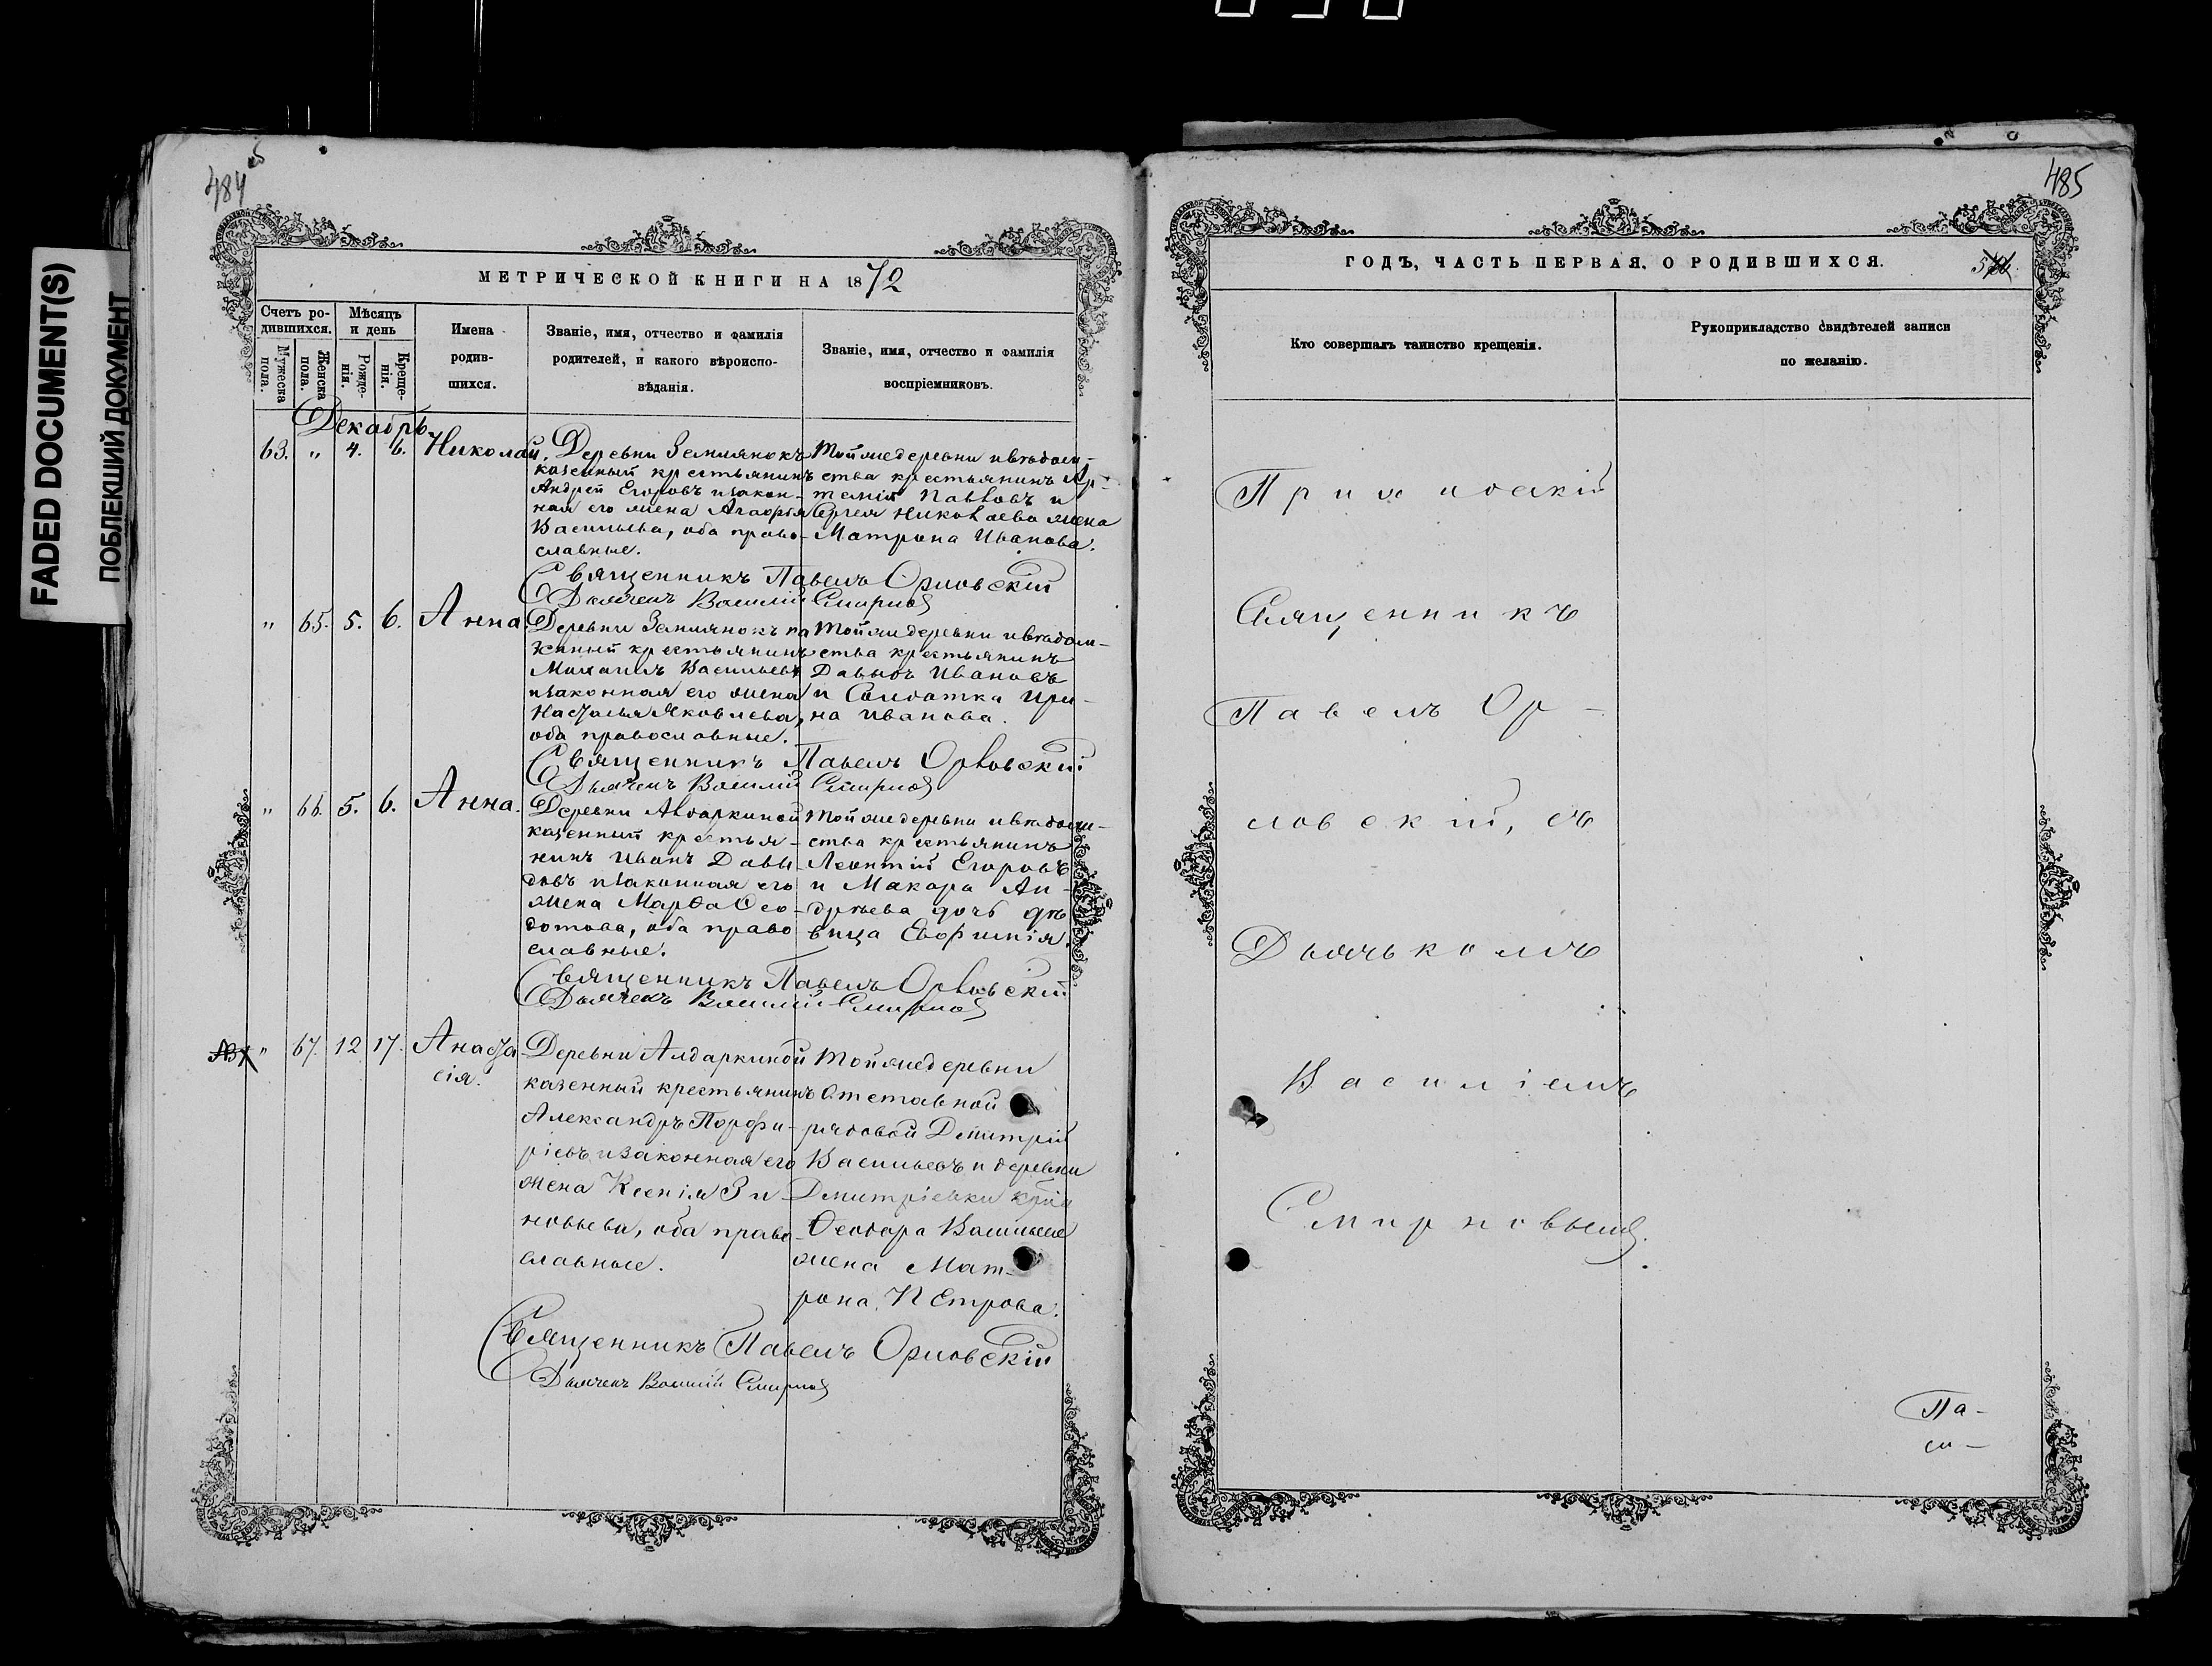 FADED DOCUMENT(S)
ПОБЛЕКШИЙ ДОКУМЕНТ
484
МЕТРИЧЕСКОЙ КНИГИ НА 1872
Счетъ ро-
дившихся.
Мужеска
пола.
Женска
пола.
Мѣсяцъ
и день
Рожде-
нія.
Креще-
нія.
Имена
родив-
шихся.
Званіе, имя, отчество и фамилія
родителей, и какого вѣроиспо-
вѣданія.
Званіе, имя, отчество и фамилія
воспріемниковъ.
Декабрь
63. „ 4. 6. Николай.
Деревни Землянокъ
казенный крестьянинъ
Андрей Егоровъ и закон-
ная его жена Агафья
Васильева, оба право-
славные.
Той же деревни и вѣдом-
ства крестьянинъ Ар-
темій Павловъ и
Сергея Николаева жена
Матрона Иванова.
Священникъ Павелъ Орловскій
Дьячекъ Василій Смирновъ
„ 65. 5. 6. Анна
Деревни Землянокъ ка
зенный крестьянинъ
Михаилъ Васильевъ
и законная его жена
Настасья Яковлева,
оба православные.
Той же деревни и вѣдом-
ства крестьянинъ
Давыдъ Ивановъ
и Солдатка Ири-
на Иванова.
Священникъ Павелъ Орловскій
Дьячекъ Василій Смирновъ
„ 66. 5. 6. Анна.
Деревни Алдаркиной
казенный крестья-
нинъ Иванъ Давы
довъ и законная его
жена Марѳа Ѳео-
дотова, оба право
славные.
Той же деревни и вѣдом-
ства крестьянинъ
Леонтій Егоровъ
и Макара Ан-
дреева дочь дѣ
вица Евфимія.
Священникъ Павелъ Орловскій
Дьячекъ Василій Смирновъ
„ 67. 12 17. Анаста
сія.
Деревни Алдаркиной
казенный крестьянинъ
Александръ Порфи-
ріевъ и законная его
жена Ксенія Зи-
новьева, оба право-
славные.
Той же деревни
Отставной
рядовой Дмитрій
Васильевъ и деревни
Дмитріевки кр-на
Ѳеодора Васильева
жена Мат-
рона Петрова.
Священникъ Павелъ Орловскій
Дьячекъ Василій Смирновъ
485
ГОДЪ, ЧАСТЬ ПЕРВАЯ, О РОДИВШИХСЯ.
Кто совершалъ таинство крещенія.
Рукоприкладство свидѣтелей записи
по желанію.
Приходскій
Священникъ
Павелъ Ор-
ловскій, съ
Дьячькомъ
Василіемъ
Смирновымъ.
Па-